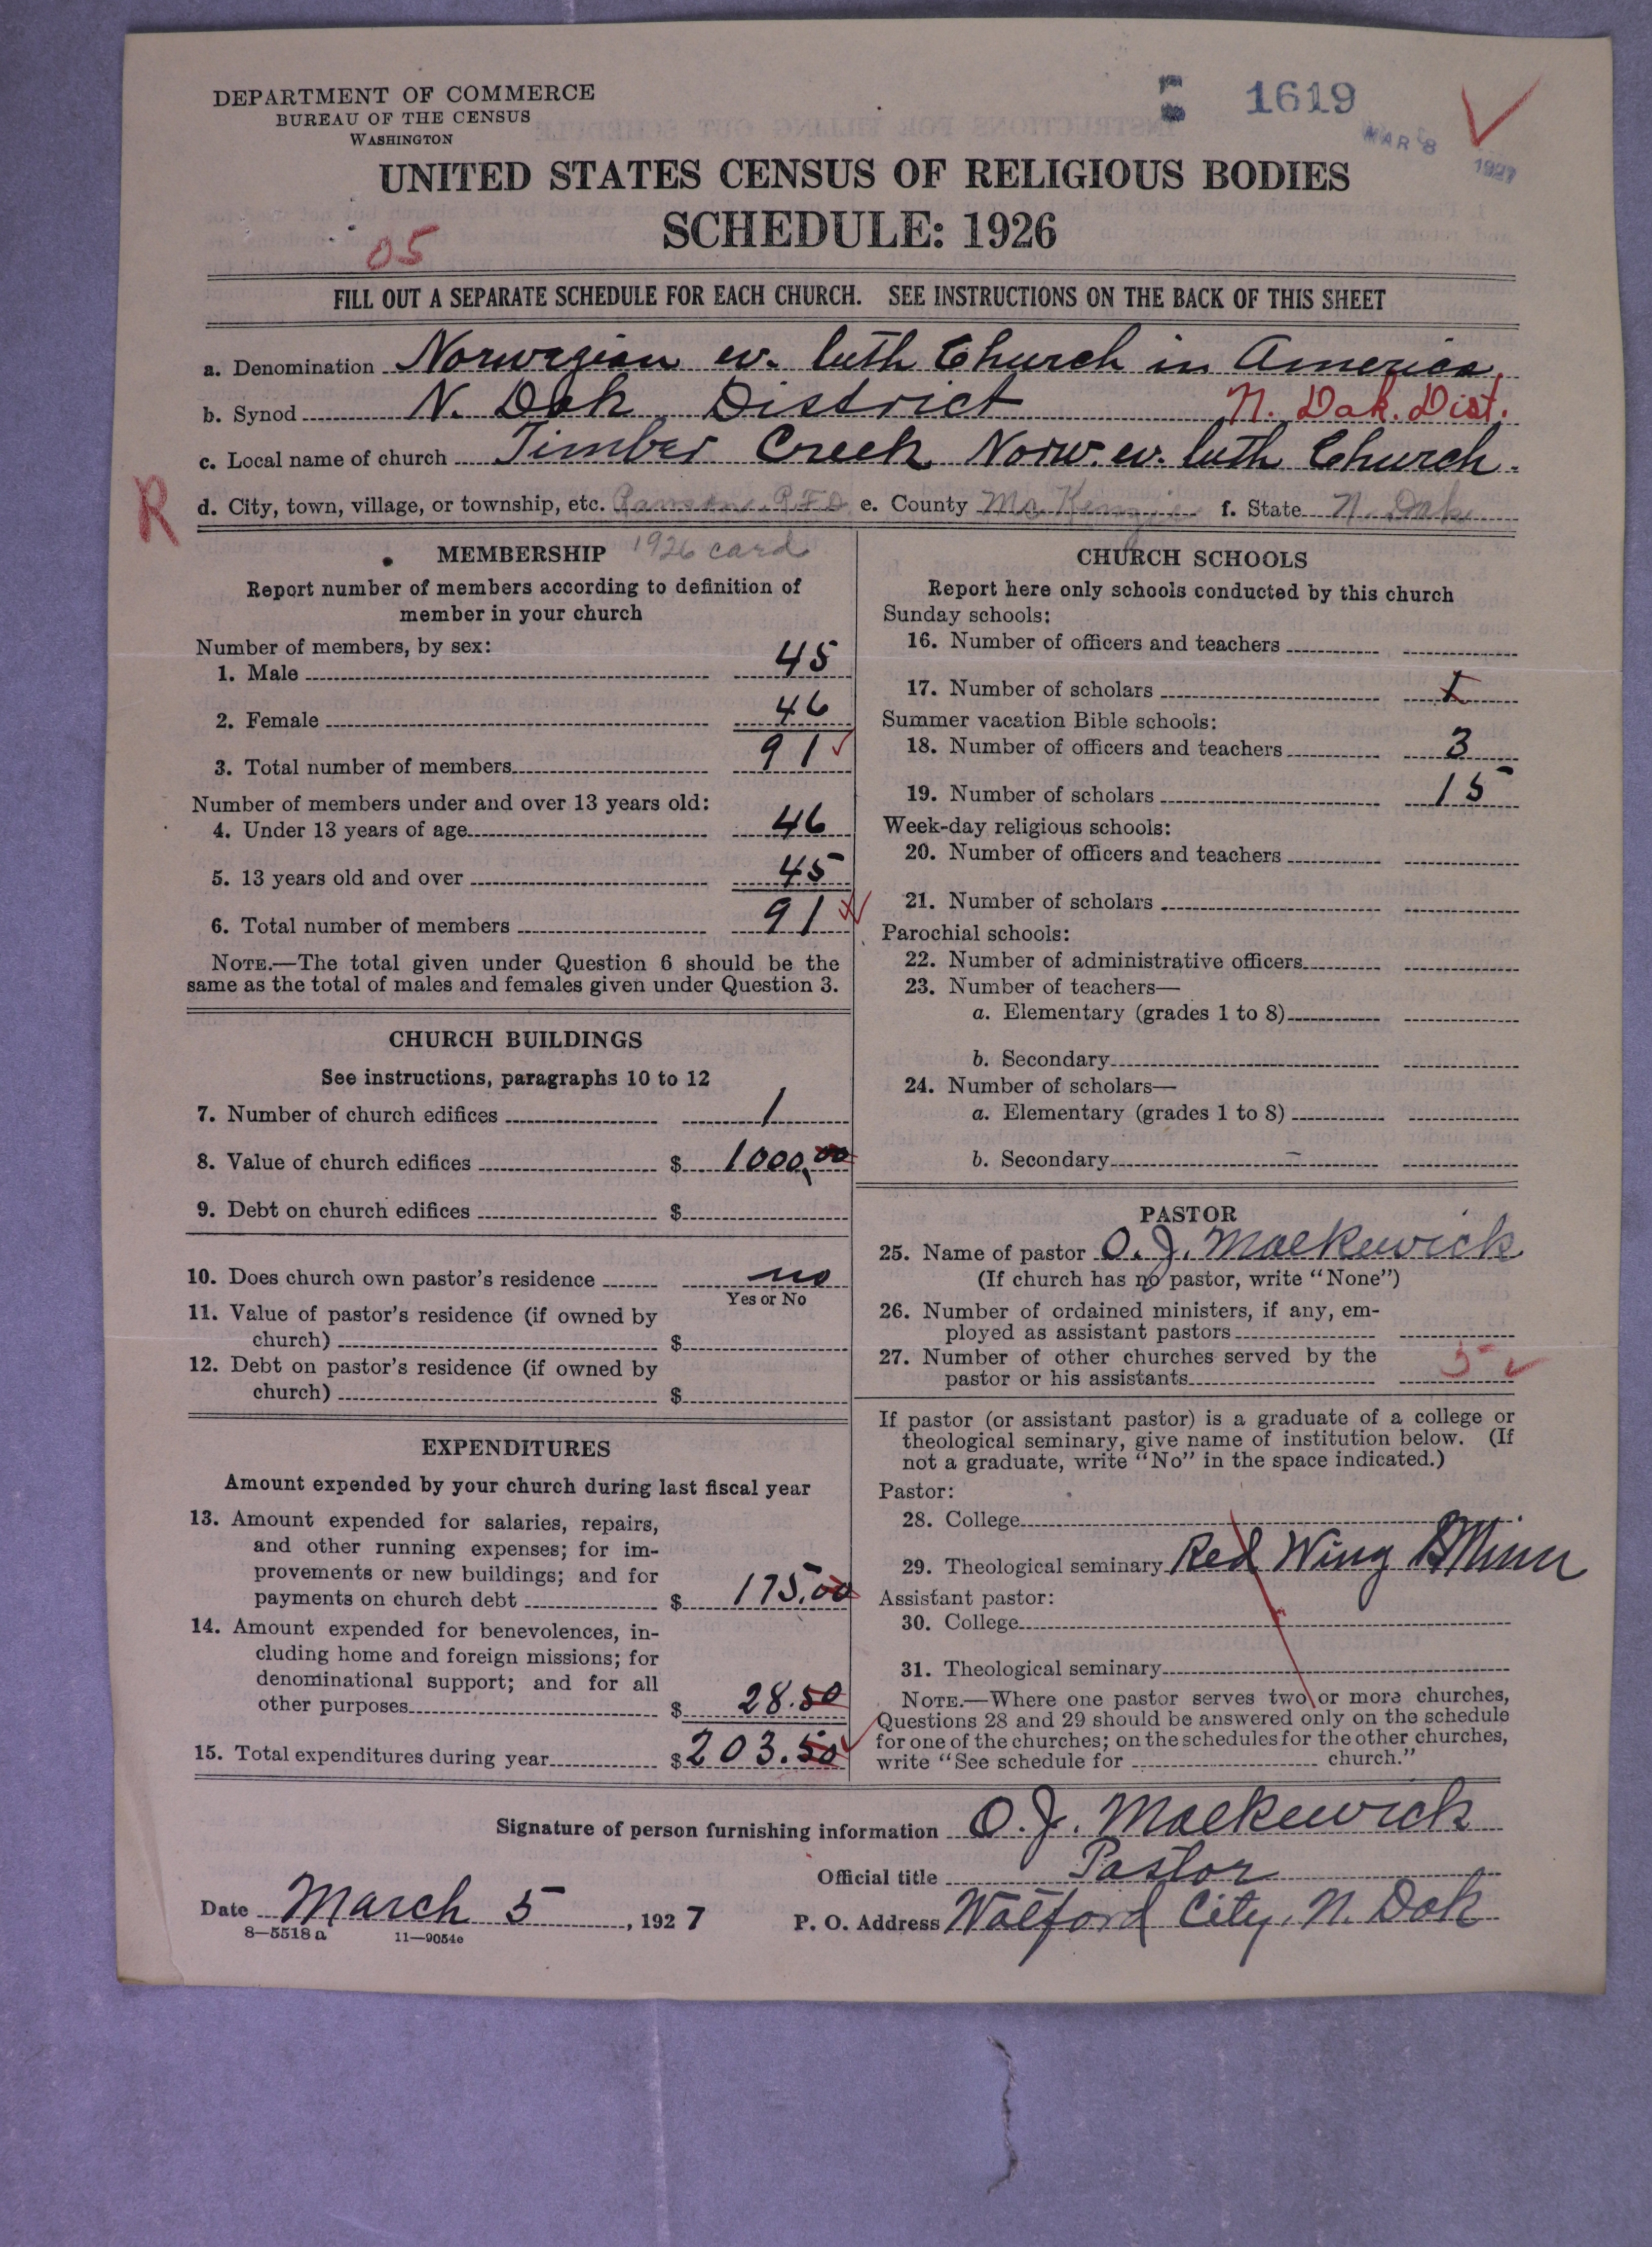 DEPARTMENT OF COMMERCE
BUREAU OF THE CENSUS
WASHINGTON
1619
MAR 8 1927
UNITED STATES CENSUS OF RELIGIOUS BODIES
SCHEDULE: 1926
05
FILL OUT A SEPARATE SCHEDULE FOR EACH CHURCH. SEE INSTRUCTIONS ON THE BACK OF THIS SHEET
a. Denomination Norwegian ev. luth Church in America.
b. Synod N. Dak District N. Dak. Dist.
c. Local name of church Timber Creek Norw. ev. luth Church.
R
d. City, town, village, or township, etc. R.F.D. e. County McKenzie f. State N. Dak
MEMBERSHIP 1926 card
Report number of members according to definition of
member in your church
Number of members, by sex:
1. Male 45
2. Female 46
3. Total number of members 91
Number of members under and over 13 years old:
4. Under 13 years of age 46
5. 13 years old and over 45
6. Total number of members 91
NOTE.—The total given under Question 6 should be the
same as the total of males and females given under Question 3.
CHURCH BUILDINGS
See instructions, paragraphs 10 to 12
7. Number of church edifices 1
8. Value of church edifices $ 1000.00
9. Debt on church edifices $
10. Does church own pastor's residence no
Yes or No
11. Value of pastor's residence (if owned by
church) $
12. Debt on pastor's residence (if owned by
church) $
EXPENDITURES
Amount expended by your church during last fiscal year
13. Amount expended for salaries, repairs,
and other running expenses; for im-
provements or new buildings; and for
payments on church debt $ 175.00
14. Amount expended for benevolences, in-
cluding home and foreign missions; for
denominational support; and for all
other purposes $ 28.50
15. Total expenditures during year $ 203.50
CHURCH SCHOOLS
Report here only schools conducted by this church
Sunday schools:
16. Number of officers and teachers
17. Number of scholars
Summer vacation Bible schools:
18. Number of officers and teachers 3
19. Number of scholars 15
Week-day religious schools:
20. Number of officers and teachers
21. Number of scholars
Parochial schools:
22. Number of administrative officers
23. Number of teachers—
a. Elementary (grades 1 to 8)
b. Secondary
24. Number of scholars—
a. Elementary (grades 1 to 8)
b. Secondary
PASTOR
25. Name of pastor O. J. Malkewick
(If church has no pastor, write "None")
26. Number of ordained ministers, if any, em-
ployed as assistant pastors
27. Number of other churches served by the
pastor or his assistants 5
If pastor (or assistant pastor) is a graduate of a college or
theological seminary, give name of institution below. (If
not a graduate, write "No" in the space indicated.)
Pastor:
28. College
29. Theological seminary Red Wing Minn
Assistant pastor:
30. College
31. Theological seminary
NOTE.—Where one pastor serves two or more churches,
Questions 28 and 29 should be answered only on the schedule
for one of the churches; on the schedules for the other churches,
write "See schedule for church."
Signature of person furnishing information O. J. Malkewick
Official title Pastor
Date March 5, 1927 P. O. Address Watford City, N. Dak
8—5518a 11—9054e